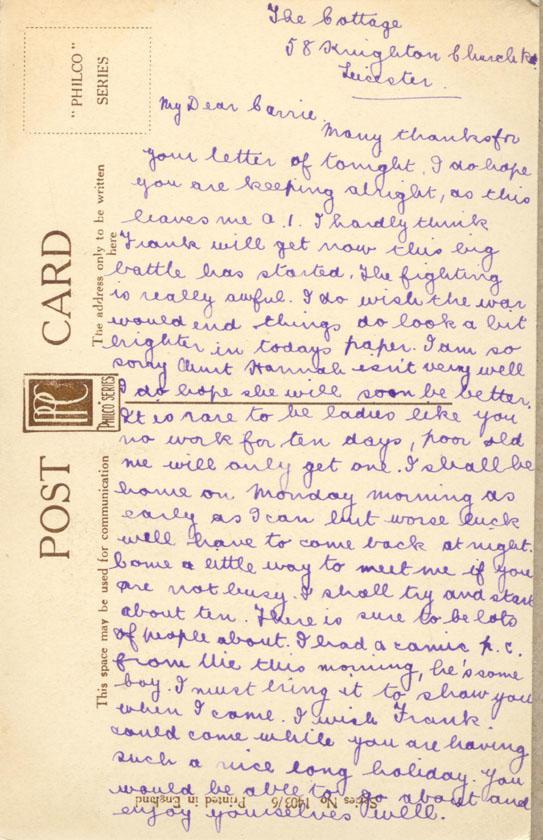 The Cottage
58 Knighton Church Rd
Leicester
My Dear Carrie.
Many thanks for
your letter of tonight. I do hope
you are keeping alright, as this
leaves me A.1. I hardly think
Frank will get now this big
battle has started. The fighting
is really awful. I do wish the war
would end things do look a bit
brighter in todays paper. I am so
sorry Aunt Hannah isn't very well
I do hope she will soon be better.
It is rare to be ladies like you
no work for ten days, poor old
me will only get one. I shall be
home on Monday morning as
early as I can but worse luck
well have to come back at night.
Come a little way to meet me if you
are not busy. I shall try and start
about ten. There is sure to be lots
of people about. I had a comic p.c.
from this morning, he's some
boy. I must bring it to show you
when I come. I wish Frank.
could come while you are having
such a nice long holiday. You
would be able to go about and
enjoy yourselves well.
"PHILCO"
SERIES
POST CARD
The address only to be written
here
This space may be used for communication
PHILCO SERIES
Series No 1403/6 Printed in England